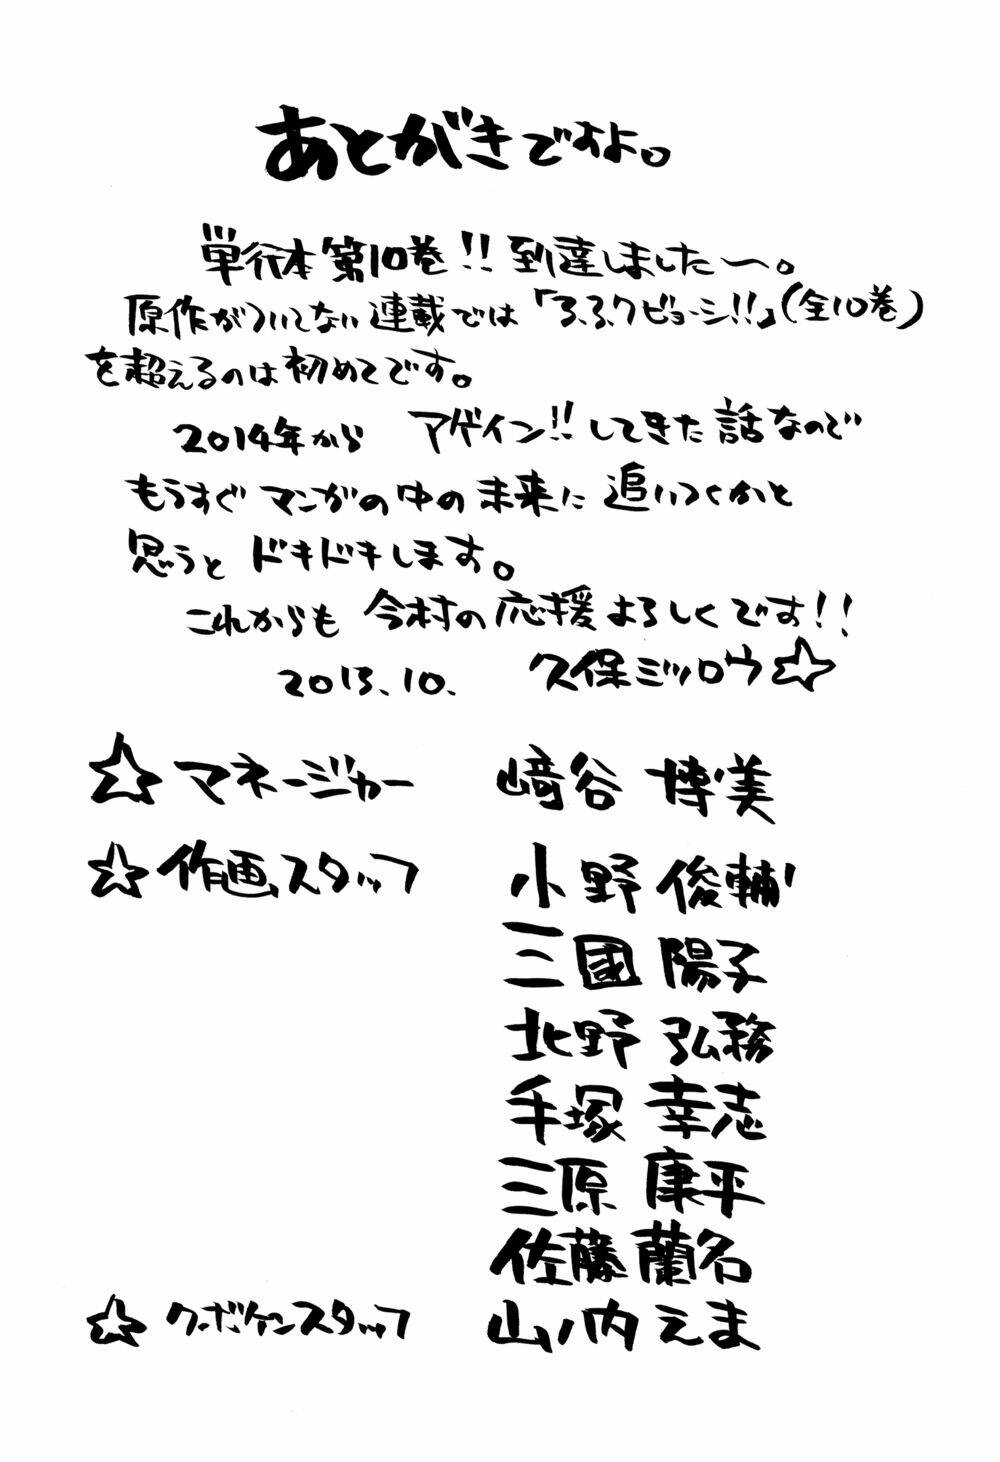 あとがきですよ。
単行本第10巻!!到達しました〜。
原作がついてない連載では「3.3.7ビョーシ!!」(全10巻)
を超えるのは初めてです。
2014年から アゲイン!!してきた話なので
もうすぐマンガの中の未来に追いつくかと
思うとドキドキします。
これからも今村の応援よろしくです!!
2013.10. 久保ミツロウ☆
☆マネージャー 﨑谷 博美
☆作画スタッフ 小野 俊輔
三國 陽子
北野 弘務
手塚 幸志
三原 康平
佐藤 蘭名
☆クボケンスタッフ 山ノ内 えま